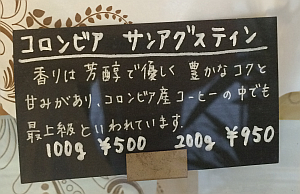 コロンビア サンアグスティン
香りは芳醇で優しく 豊かなコクと
甘みがあり、コロンビア産コーヒーの中でも
最上級といわれています.
100g ¥500 200g ¥950